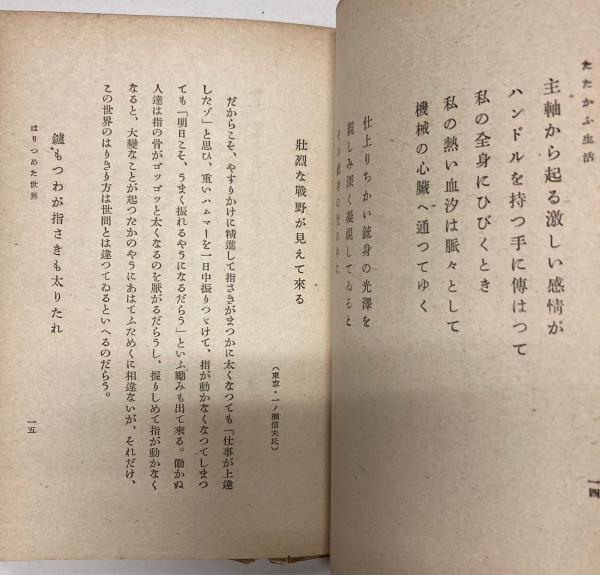 たたかふ生活
主軸から起る激しい感情が
ハンドルを持つ手に傳はつて
私の全身にひびくとき
私の熱い血汐は脈々として
機械の心臓へ通つてゆく
仕上りちかい銃身の光澤を
親しみ深く凝視してゐると
その銃身の光の中に
一四
壯烈な戰野が見えて來る
(東京・一ノ瀬信夫氏)
だからこそ、やすりかけに精進して指さきがまつかに太くなつても「仕事が上達
したゾ」と思ひ、重いハムマーを一日中振りつゞけて、指が動かなくなつてしまつ
ても「明日こそ、うまく振れるやうになるだらう」といふ勵みも出て來る。働かぬ
人達は指の骨がゴッゴッと太くなるのを厭がるだらうし、握りしめて指が動かなく
なると、大變なことが起つたかのやうにあはてふためくに相違ないが、それだけ、
この世界のはりきり方は世間とは違つてゐるといへるのだらう。
鑢もつわが指さきも太りたれ
はりつめた世界
一五